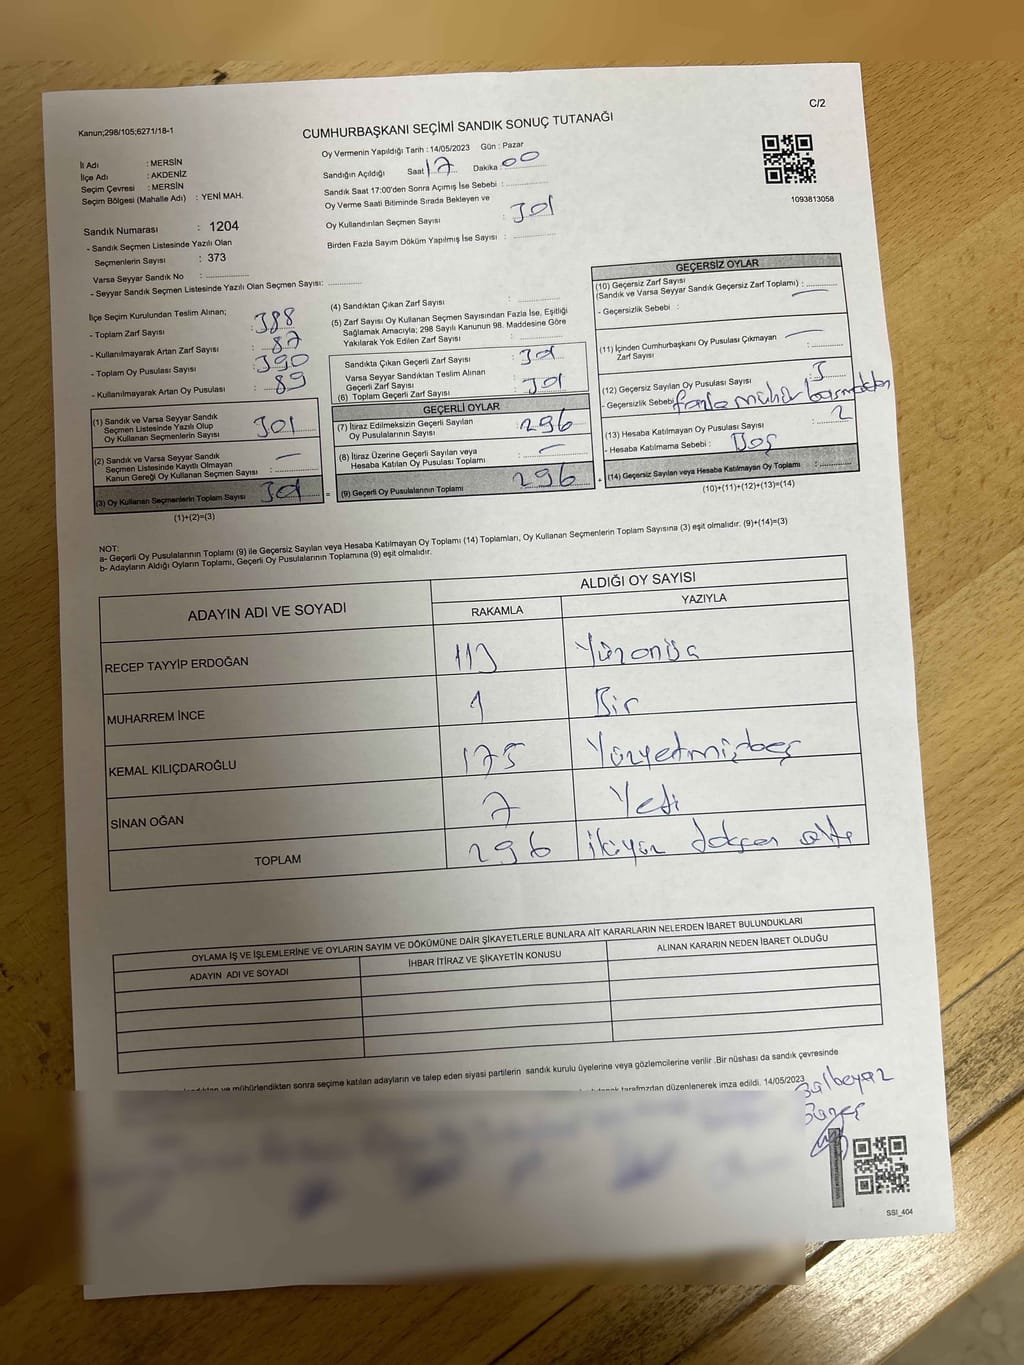 C/2
Kanun;298/105;6271/18-1
CUMHURBAŞKANI SEÇİMİ SANDIK SONUÇ TUTANAĞI
İl Adı : MERSİN
İlçe Adı : AKDENİZ
Seçim Çevresi : MERSİN
Seçim Bölgesi (Mahalle Adı) : YENİ MAH.
Oy Vermenin Yapıldığı Tarih : 14/05/2023 Gün : Pazar
Sandığın Açıldığı Saat 17 Dakika : 00
Sandık Saat 17:00'den Sonra Açımış İse Sebebi :
Oy Verme Saati Bitiminde Sırada Bekleyen ve
Oy Kullandırılan Seçmen Sayısı : 301
Birden Fazla Sayım Döküm Yapılmış İse Sayısı :
1093813058
Sandık Numarası : 1204
- Sandık Seçmen Listesinde Yazılı Olan
Seçmenlerin Sayısı : 373
Varsa Seyyar Sandık No :
- Seyyar Sandık Seçmen Listesinde Yazılı Olan Seçmen Sayısı:
İlçe Seçim Kurulundan Teslim Alınan;
- Toplam Zarf Sayısı : 388
- Kullanılmayarak Artan Zarf Sayısı : 87
- Toplam Oy Pusulası Sayısı : 390
- Kullanılmayarak Artan Oy Pusulası : 89
(1) Sandık ve Varsa Seyyar Sandık
Seçmen Listesinde Yazılı Olup
Oy Kullanan Seçmenlerin Sayısı : 301
(2) Sandık ve Varsa Seyyar Sandık
Seçmen Listesinde Kayıtlı Olmayan
Kanun Gereği Oy Kullanan Seçmen Sayısı : —
(3) Oy Kullanan Seçmenlerin Toplam Sayısı 301
(1)+(2)=(3)
(4) Sandıktan Çıkan Zarf Sayısı :
(5) Zarf Sayısı Oy Kullanan Seçmen Sayısından Fazla İse, Eşitliği
Sağlamak Amacıyla; 298 Sayılı Kanunun 98. Maddesine Göre
Yakılarak Yok Edilen Zarf Sayısı :
Sandıkta Çıkan Geçerli Zarf Sayısı : 301
Varsa Seyyar Sandıktan Teslim Alınan
Geçerli Zarf Sayısı :
(6) Toplam Geçerli Zarf Sayısı : 301
GEÇERLİ OYLAR
(7) İtiraz Edilmeksizin Geçerli Sayılan
Oy Pusulalarının Sayısı : 296
(8) İtiraz Üzerine Geçerli Sayılan veya
Hesaba Katılan Oy Pusulası Toplamı : —
= (9) Geçerli Oy Pusulalarının Toplamı 296 +
GEÇERSİZ OYLAR
(10) Geçersiz Zarf Sayısı
(Sandık ve Varsa Seyyar Sandık Geçersiz Zarf Toplamı) : —
- Geçersizlik Sebebi :
(11) İçinden Cumhurbaşkanı Oy Pusulası Çıkmayan
Zarf Sayısı : —
(12) Geçersiz Sayılan Oy Pusulası Sayısı : 3
- Geçersizlik Sebebi fazla mühür basmaktan
(13) Hesaba Katılmayan Oy Pusulası Sayısı : 2
- Hesaba Katılmama Sebebi : Boş
(14) Geçersiz Sayılan veya Hesaba Katılmayan Oy Toplamı :
(10)+(11)+(12)+(13)=(14)
NOT:
a- Geçerli Oy Pusulalarının Toplamı (9) ile Geçersiz Sayılan veya Hesaba Katılmayan Oy Toplamı (14) Toplamları, Oy Kullanan Seçmenlerin Toplam Sayısına (3) eşit olmalıdır. (9)+(14)=(3)
b- Adayların Aldığı Oyların Toplamı, Geçerli Oy Pusulalarının Toplamına (9) eşit olmalıdır.
ADAYIN ADI VE SOYADI
ALDIĞI OY SAYISI
RAKAMLA YAZIYLA
RECEP TAYYİP ERDOĞAN 113 Yüzonüç
MUHARREM İNCE 1 Bir
KEMAL KILIÇDAROĞLU 175 Yüzyetmişbeş
SİNAN OĞAN 7 Yedi
TOPLAM 296 ikiyüz doksan altı
OYLAMA İŞ VE İŞLEMLERİNE VE OYLARIN SAYIM VE DÖKÜMÜNE DAİR ŞİKAYETLERLE BUNLARA AİT KARARLARIN NELERDEN İBARET BULUNDUKLARI
ADAYIN ADI VE SOYADI İHBAR İTİRAZ VE ŞİKAYETİN KONUSU ALINAN KARARIN NEDEN İBARET OLDUĞU
ve mühürlendikten sonra seçime katılan adayların ve talep eden siyasi partilerin sandık kurulu üyelerine veya gözlemcilerine verilir .Bir nüshası da sandık çevresinde
tarafımızdan düzenlenerek imza edildi. 14/05/2023
SSI_404